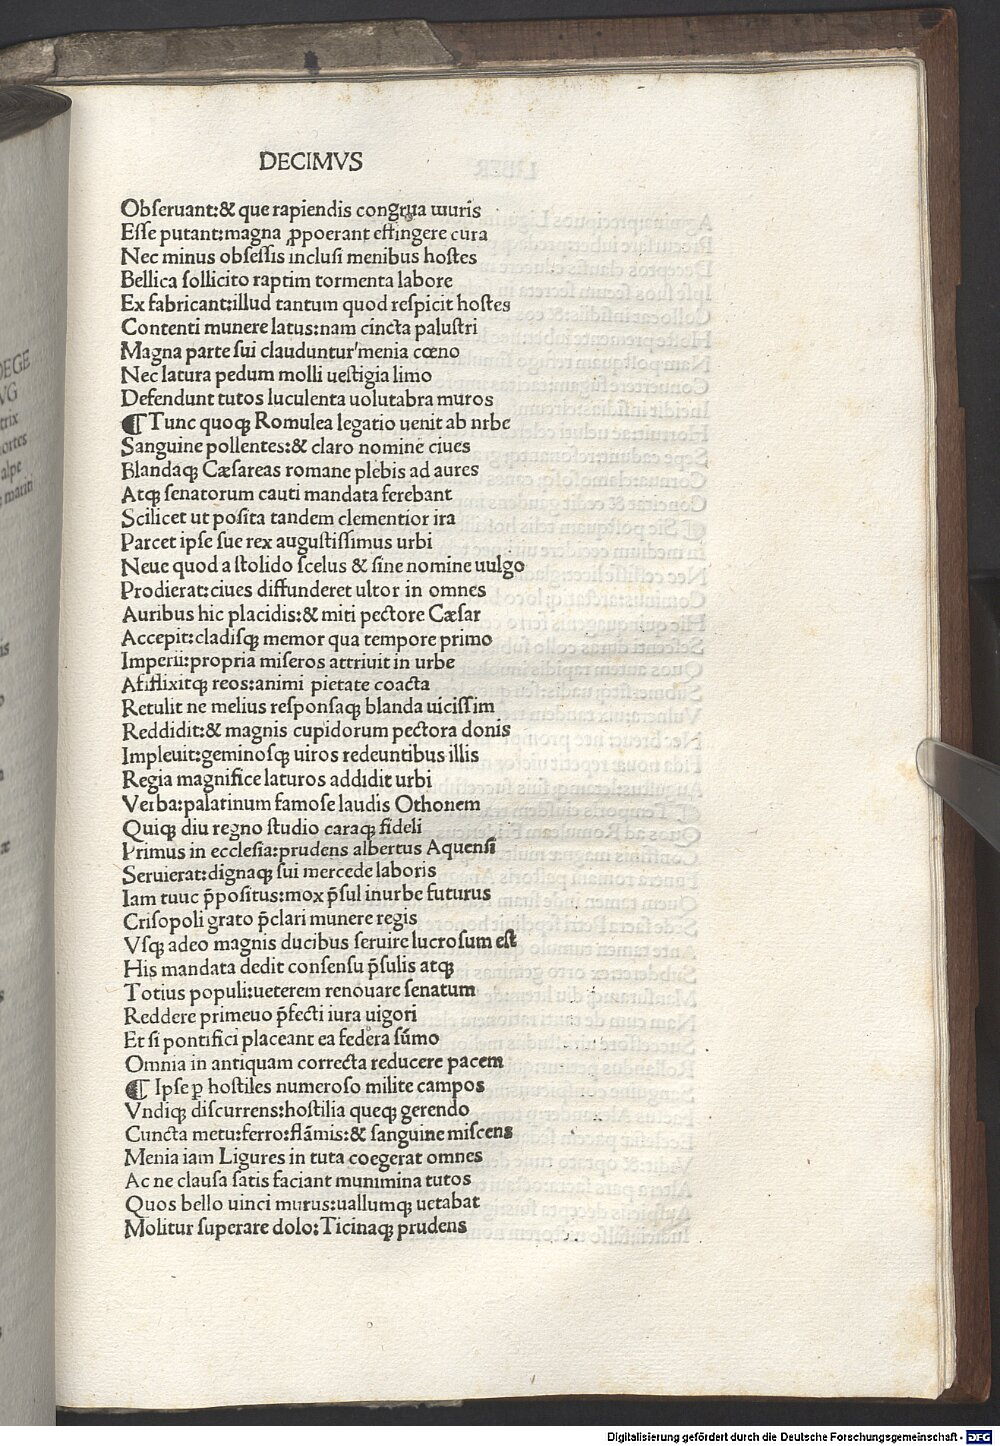 DECIMVS
Obſeruant:& que rapiendis congrua muris
Eſſe putant:magna ꝓpoerant eſtingere cura
Nec minus obſeſſis incluſi menibus hoſtes
Bellica ſollicito raptim tormenta labore
Ex fabricant:illud tantum quod reſpicit hoſtes
Contenti munere latus:nam cincta paluſtri
Magna parte ſui clauduntur menia cœno
Nec latura pedum molli ueſtigia limo
Defendunt tutos luculenta uolutabra muros
¶ Tunc quoqꝫ Romulea legatio uenit ab nrbe
Sanguine pollentes:& claro nomine ciues
Blandaqꝫ Cæſareas romane plebis ad aures
Atqꝫ ſenatorum cauti mandata ferebant
Scilicet ut poſita tandem clementior ira
Parcet ipſe ſue rex auguſtiſſimus urbi
Neue quod a ſtolido ſcelus & ſine nomine uulgo
Prodierat:ciues diffunderet ultor in omnes
Auribus hic placidis:& miti pectore Cæſar
Accepit:cladiſqꝫ memor qua tempore primo
Imperii:propria miſeros attriuit in urbe
Afiflixitqꝫ reos:animi pietate coacta
Retulit ne melius reſponſaqꝫ blanda uiciſſim
Reddidit:& magnis cupidorum pectora donis
Impleuit:geminoſqꝫ uiros redeuntibus illis
Regia magnifice laturos addidit urbi
Verba:palatinum famoſe laudis Othonem
Quiqꝫ diu regno ſtudio caraqꝫ fideli
Primus in eccleſia:prudens albertus Aquenſi
Seruierat:dignaqꝫ ſui mercede laboris
Iam tuuc p̄poſitus:mox p̄ſul in urbe futurus
Criſopoli grato p̄clari munere regis
Vſqꝫ adeo magnis ducibus ſeruire lucroſum eſt
His mandata dedit conſenſu p̄ſulis atqꝫ
Totius populi:ueterem renouare ſenatum
Reddere primeuo p̄fecti iura uigori
Et ſi pontifici placeant ea federa ſūmo
Omnia in antiquam correcta reducere pacem
¶ Ipſe ꝑ hoſtiles numeroſo milite campos
Vndiqꝫ diſcurrens:hoſtilia queqꝫ gerendo
Cuncta metu:ferro:flāmis:& ſanguine miſcens
Menia iam Ligures in tuta coegerat omnes
Ac ne clauſa ſatis faciant munimina tutos
Quos bello uinci murus:uallumqꝫ uetabat
Molitur ſuperare dolo:Ticinaqꝫ prudens
Digitalisierung gefördert durch die Deutsche Forschungsgemeinschaft - DFG